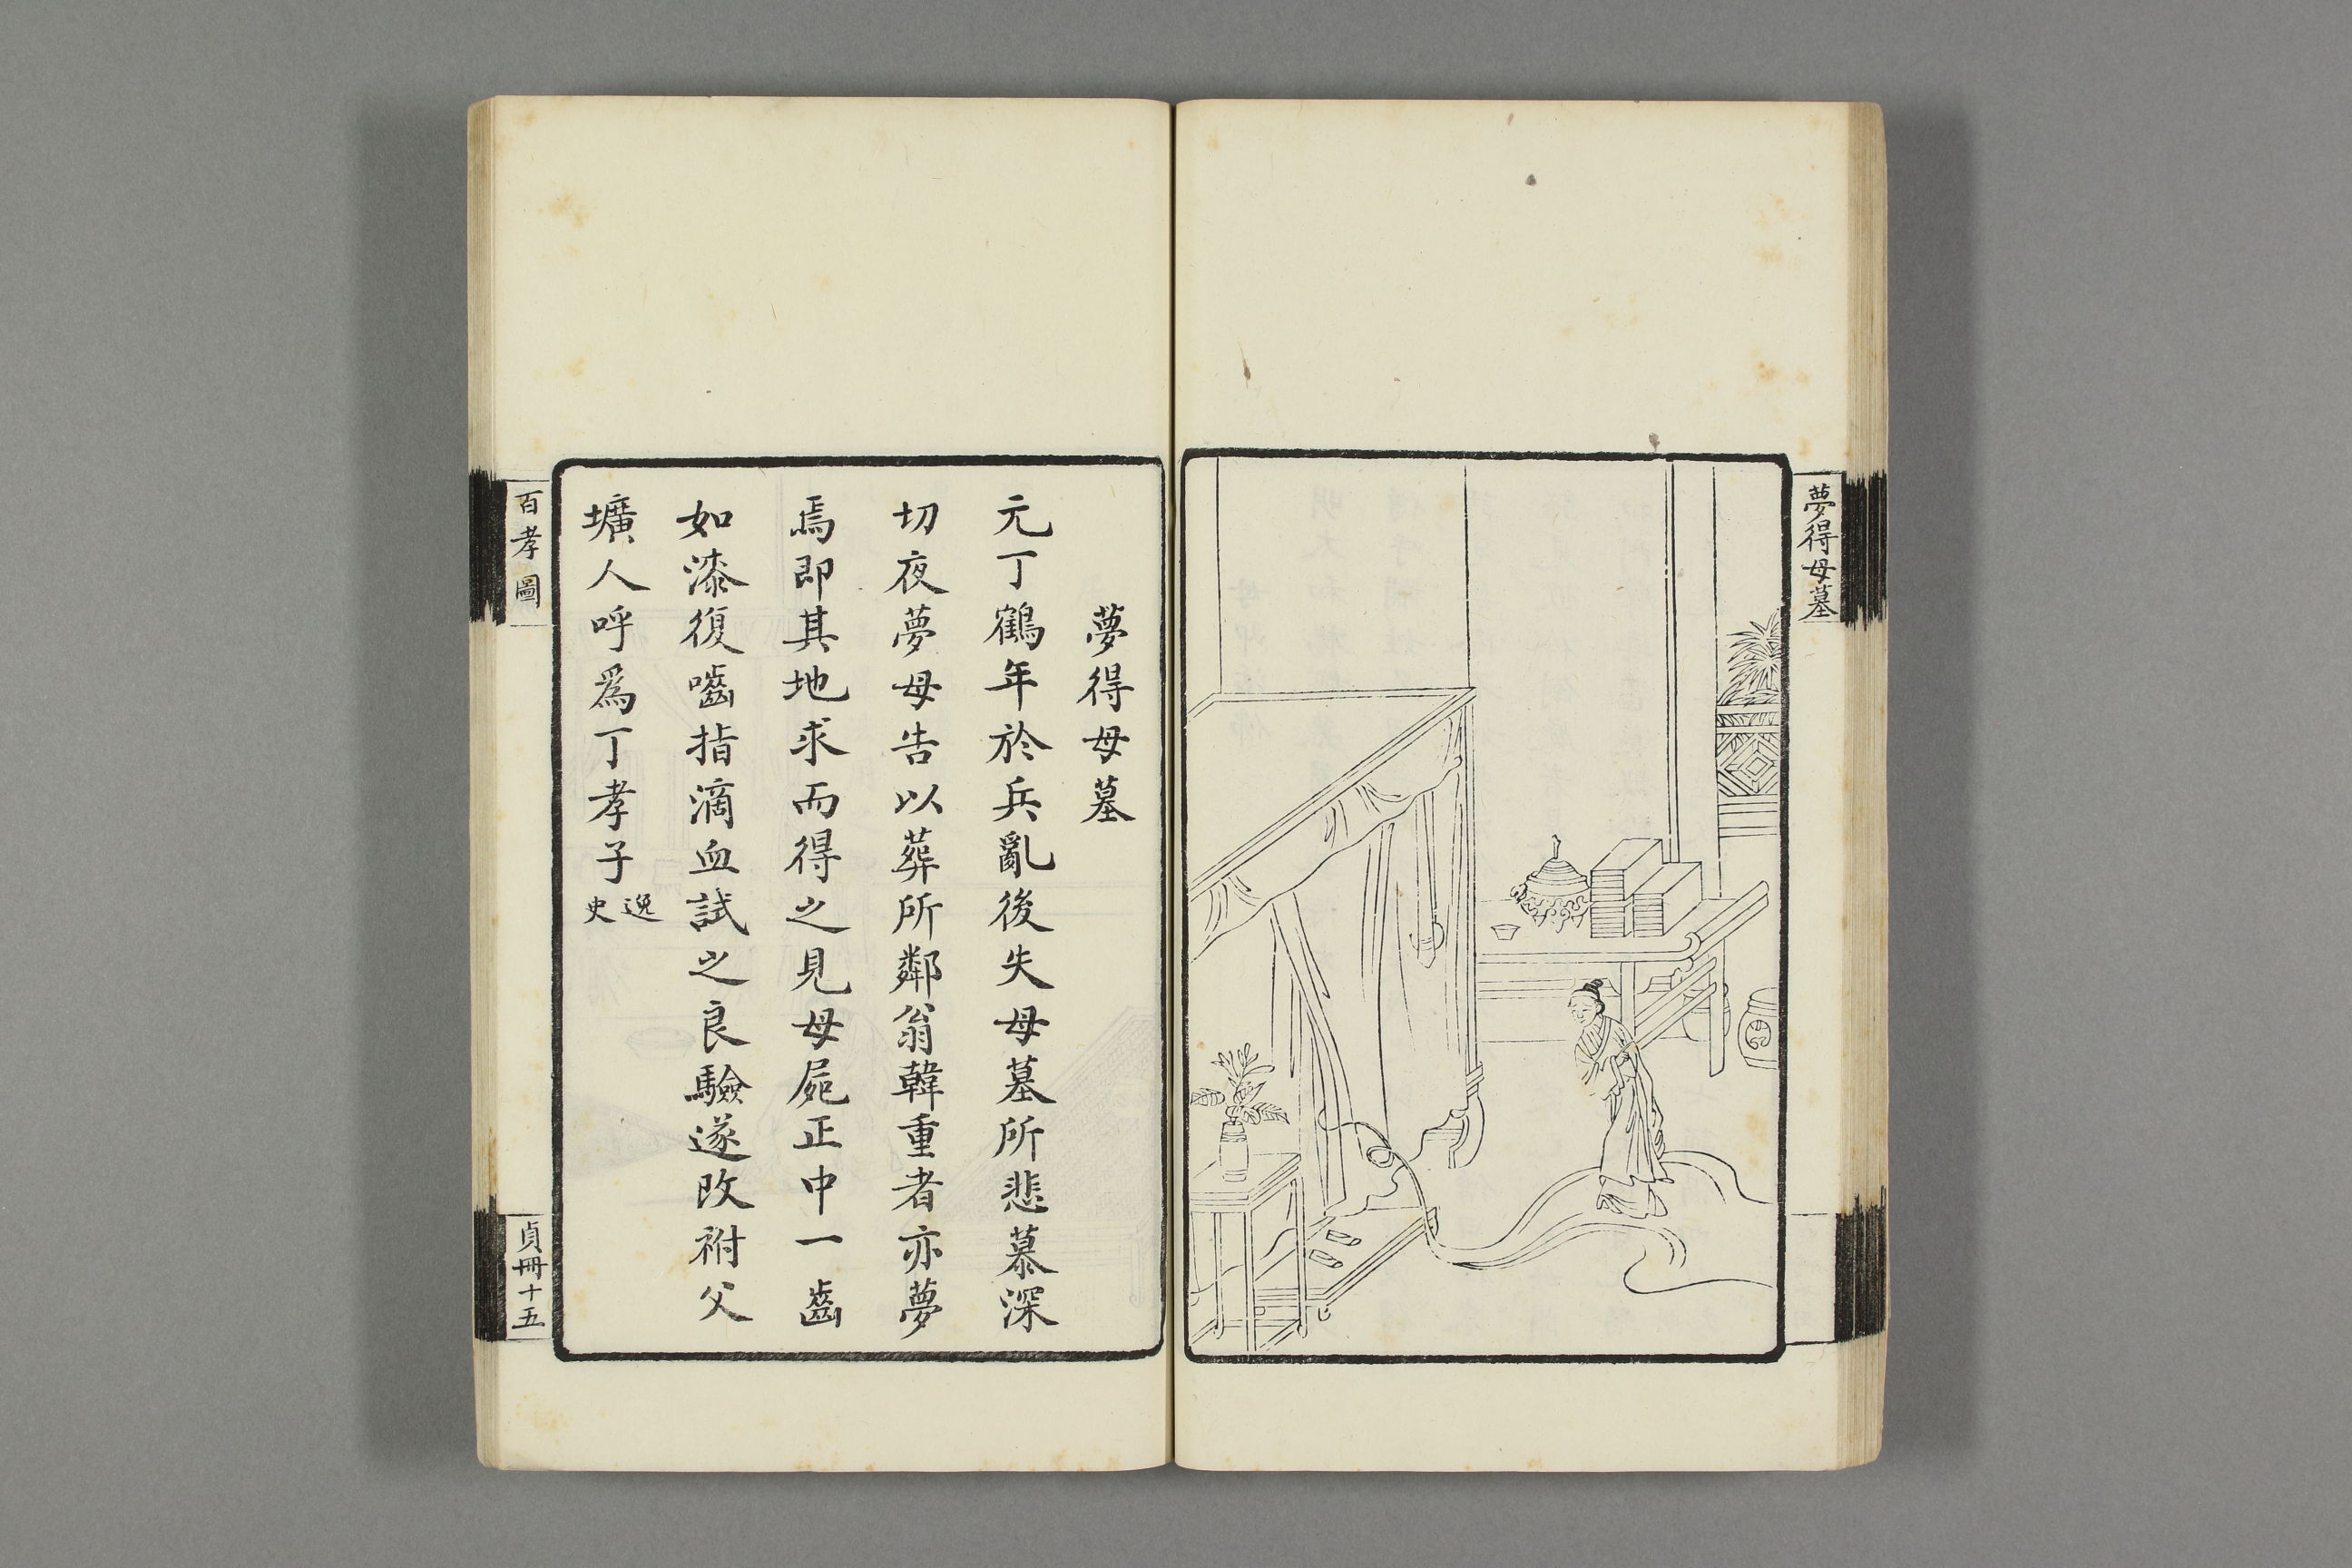 夢得母墓
夢得母墓
元丁鶴年於兵亂後失母墓所悲慕深
切夜夢母告以葬所鄰翁韓重者亦夢
焉即其地求而得之見母屍正中一齒
如漆復嚙指滴血試之良驗遂改祔父
壙人呼爲丁孝子逸史
百孝圖
貞冊十五